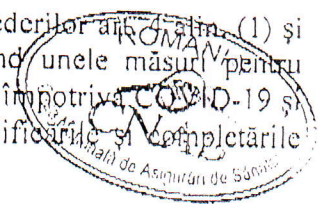 ederilor art. alin. (1) și
nd unele măsuri pentru
împotriva COVID-19 și
ificările și completările
ROMÂNIA
de Asigurări de Sănăt